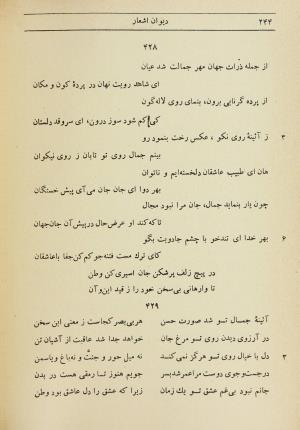 ۲۴۴
دیوان اشعار
۴۲۸
از جمله ذرّات جهان مهر جمالت شد عیان
ای شاهد رویت نهان در پردهٔ کون و مکان
از پرده گر نایی برون، بنمای روی لاله‌گون
کی کم شود سوز درون، ای سروقد دلستان
۳ ز آئینهٔ روی نکو ، عکس رخت بنمود رو
بینم جمال روی تو تابان ز روی نیکوان
هان ای طبیب عاشقان دلخسته‌ایم و ناتوان
بهر دوا ای جان جان می‌آی پیش خستگان
چون یار بنماید جمال، جان مرا نبود مجال
تا که کند او عرض حال در پیش آن جان جهان
۶ بهر خدا ای تندخو با چشم جادویت بگو
کای ترك مست فتنه جو کم کن جفا با عاشقان
در پیچ زلف پرشکن جان اسیری کن وطن
تا وارهانی بی‌سخن خود را ز قید این و آن
۴۲۹
آئینهٔ جمال تو شد صورت حسن هر بی‌بصر کجاست ز معنی این سخن
در آرزوی دیدن روی تو مرغ جان خواهد جدا شد عاقبت از آشیان تن
۳ دل با خیال روی تو هرگز نمی‌کند نه میل حور و جنّت و نه باغ و یاسمن
در جست‌وجوی دوست مرا عمر شد بسر جویم هنوز تا رمقی هست در بدن
جانم نبود بی‌غم عشق تو یك زمان زیرا که عشق را دل عاشق بود وطن